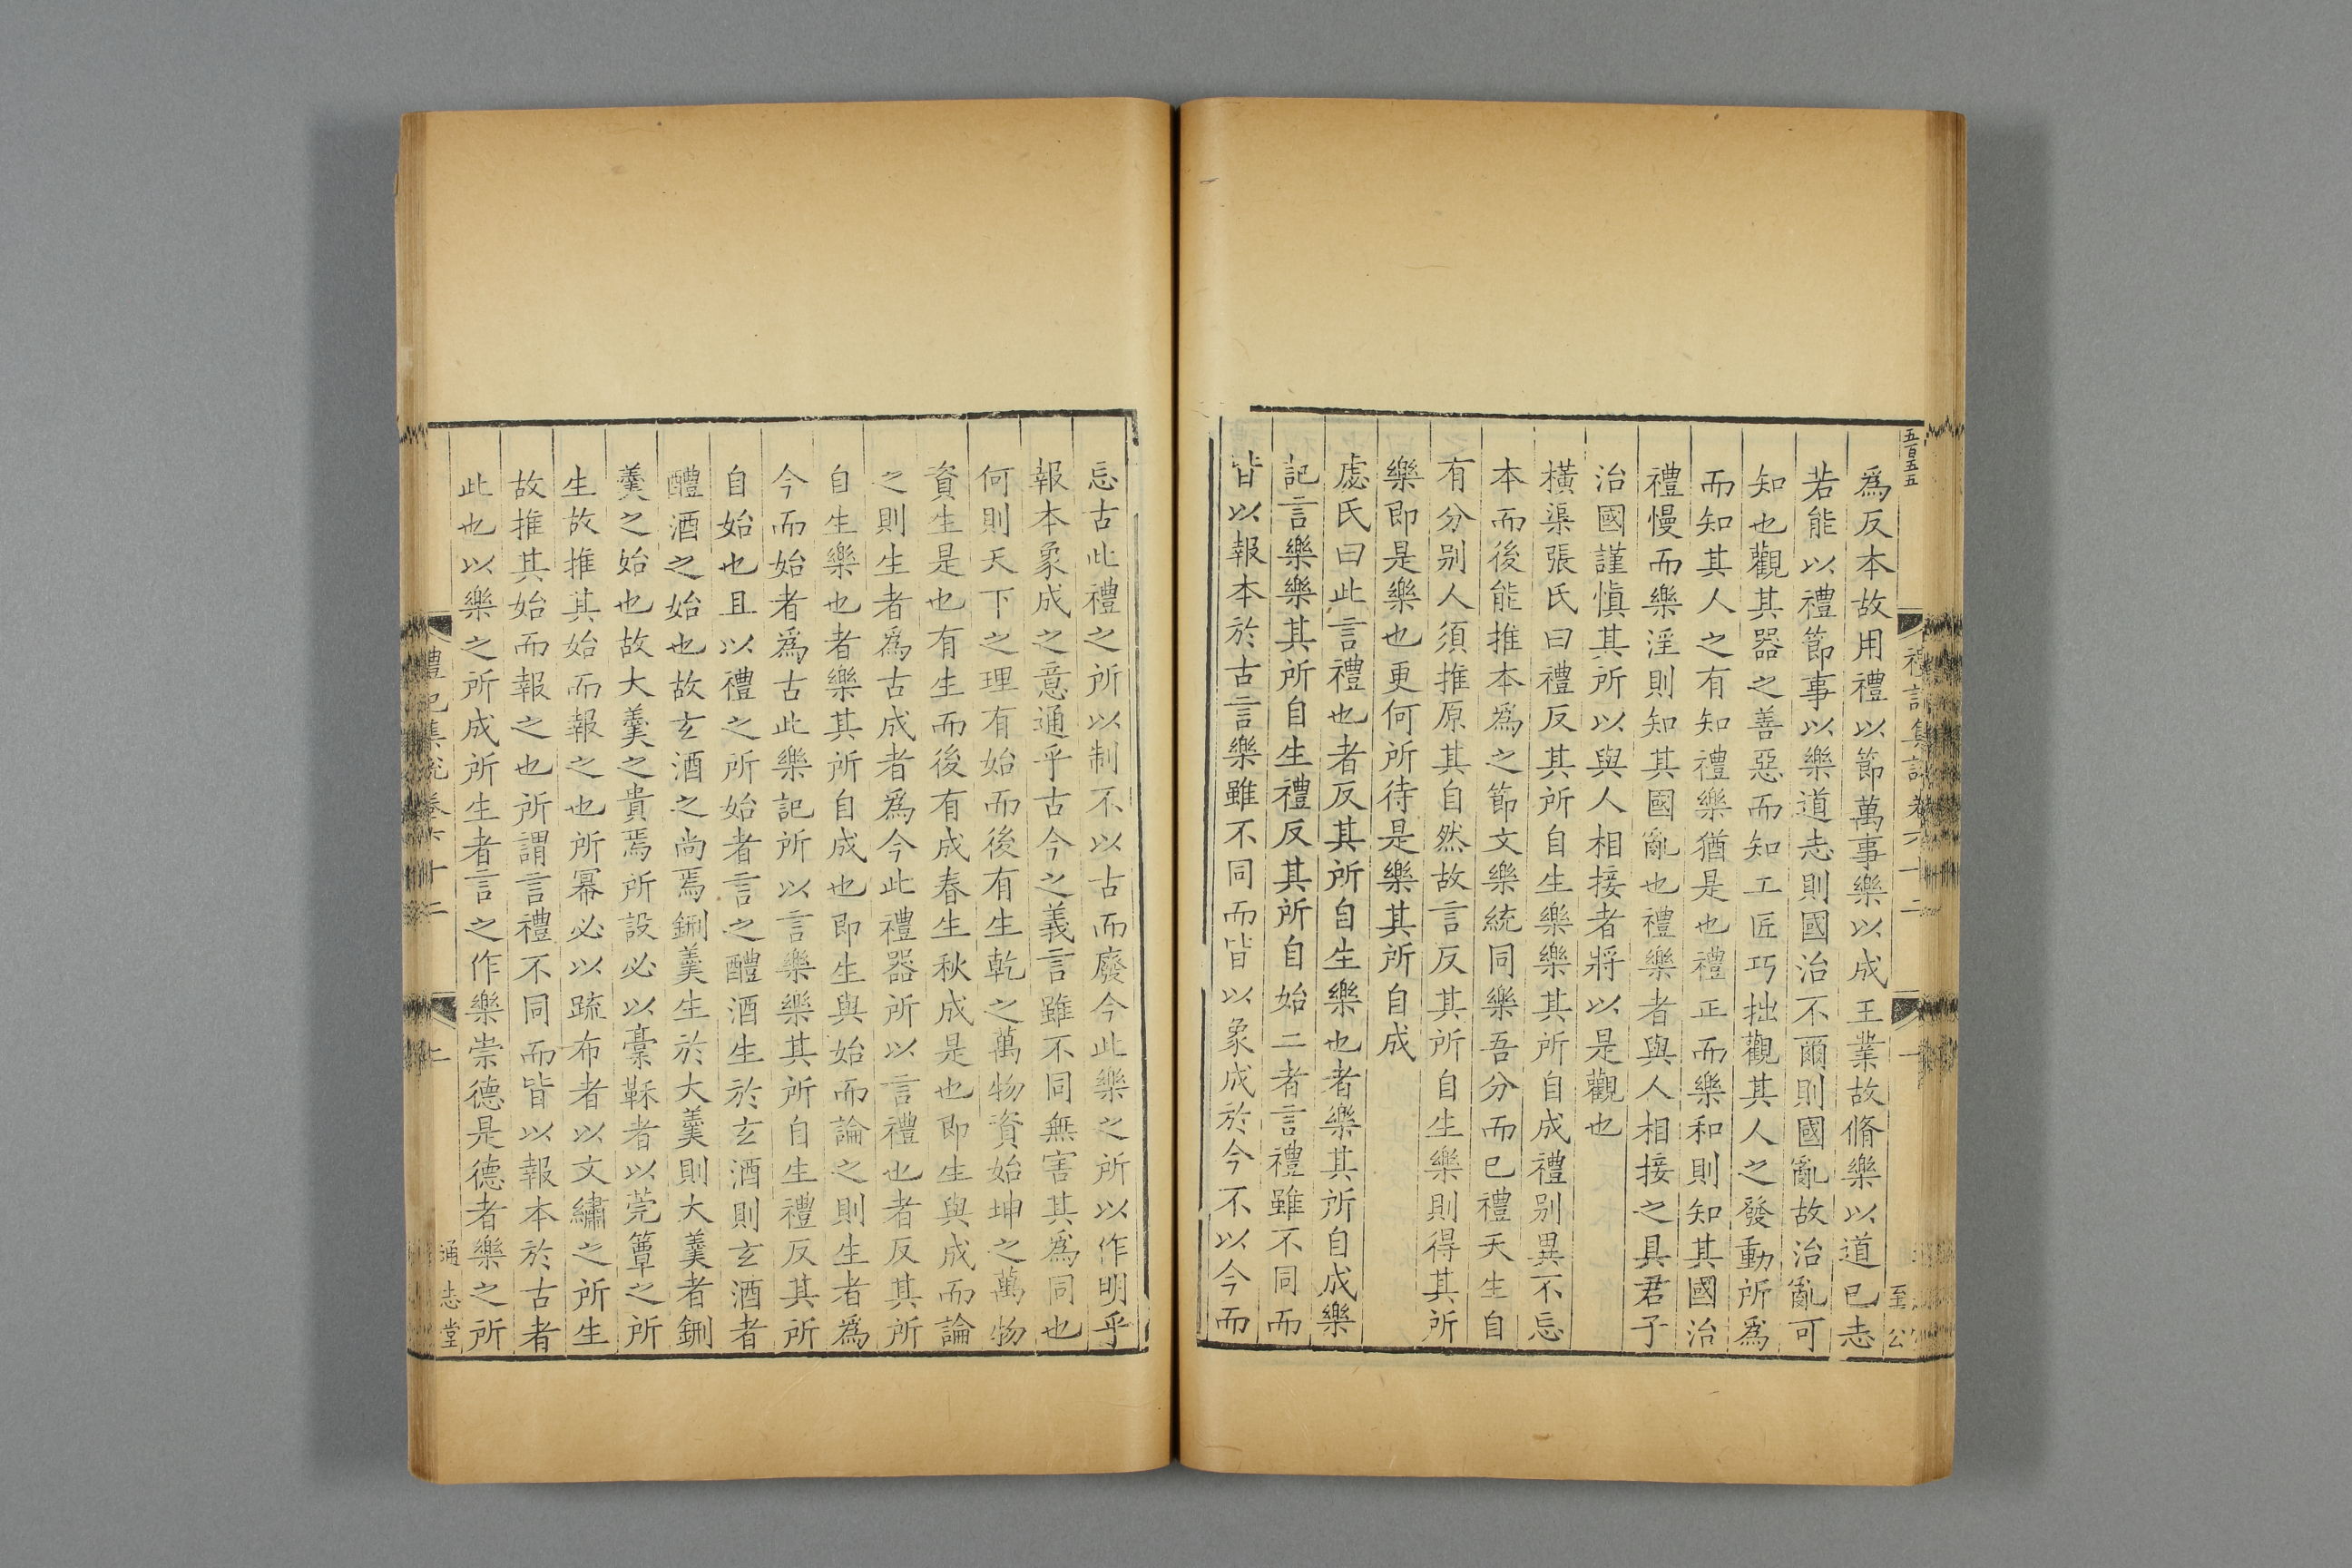 五百五五
爲反本故用禮以節萬事樂以成王業故脩樂以道已志
若能以禮節事以樂道志則國治不爾則國亂故治亂可
知也觀其器之善惡而知工匠巧拙觀其人之發動所爲
而知其人之有知禮樂猶是也禮正而樂和則知其國治
禮慢而樂淫則知其國亂也禮樂者與人相接之具君子
治國謹愼其所以與人相接者將以是觀也
橫渠張氏曰禮反其所自生樂樂其所自成禮别異不忘
本而後能推本爲之節文樂統同樂吾分而已禮天生自
有分别人須推原其自然故言反其所自生樂則得其所
樂即是樂也更何所待是樂其所自成
慮氏曰此言禮也者反其所自生樂也者樂其所自成樂
記言樂樂其所自生禮反其所自始二者言禮雖不同而
皆以報本於古言樂雖不同而皆以象成於今不以今而
忘古此禮之所以制不以古而廢今此樂之所以作明乎
報本象成之意通乎古今之義言雖不同無害其爲同也
何則天下之理有始而後有生乾之萬物資始坤之萬物
資生是也有生而後有成春生秋成是也即生與成而論
之則生者爲古成者爲今此禮器所以言禮也者反其所
自生樂也者樂其所自成也即生與始而論之則生者爲
今而始者爲古此樂記所以言樂樂其所自生禮反其所
自始也且以禮之所始者言之醴酒生於玄酒則玄酒者
醴酒之始也故玄酒之尚焉鉶羹生於大羹則大羹者鉶
羹之始也故大羹之貴焉所設必以藁鞂者以莞簟之所
生故推其始而報之也所冪必以疏布者以文繡之所生
故推其始而報之也所謂言禮不同而皆以報本於古者
此也以樂之所成所生者言之作樂崇德是德者樂之所
禮記集說卷六十二
通志堂